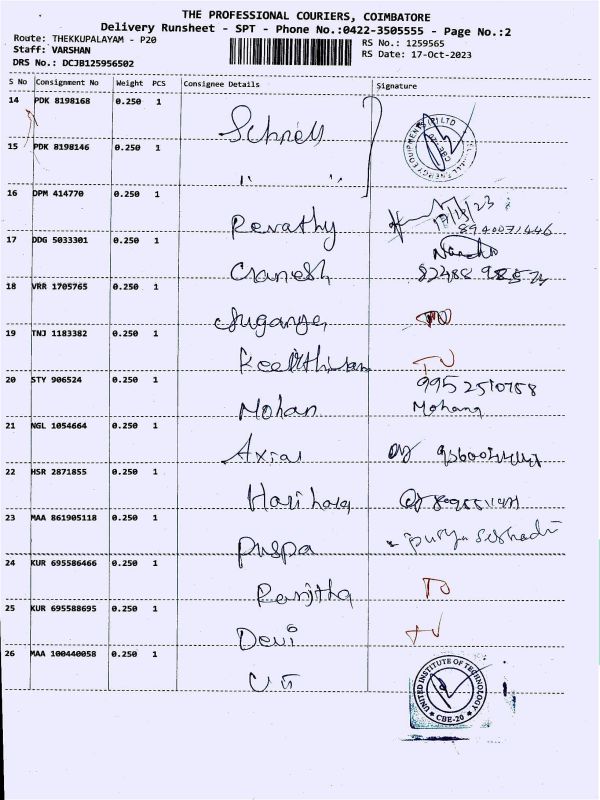 THE PROFESSIONAL COURIERS, COIMBATORE
Delivery Runsheet - SPT - Phone No.:0422-3505555 - Page No.:2
Route: THEKKUPALAYAM - P20
RS No.: 1259565
Staff: VARSHAN
RS Date: 17-Oct-2023
DRS No.: DCJB125956502
S No Consignment No Weight PCS Consignee Details Signature
14 PDK 8198168 0.250 1 Schnell
15 PDK 8198146 0.250 1 " "
16 DPM 414770 0.250 1 Revathy 8940071446
17 DDG 5033301 0.250 1 Ganesh
18 VRR 1705765 0.250 1 Suganya
19 TNJ 1183382 0.250 1 Keerthivasan
20 STY 906524 0.250 1 Mohan 9952510758 Mohana
21 NGL 1054664 0.250 1 Axial
22 HSR 2871855 0.250 1 Harihara
23 MAA 861905118 0.250 1 Puspa
24 KUR 695586466 0.250 1 Ranjitha
25 KUR 695588695 0.250 1 Devi
26 MAA 100440058 0.250 1 UIT
UNITED INSTITUTE OF TECHNOLOGY
CBE-20